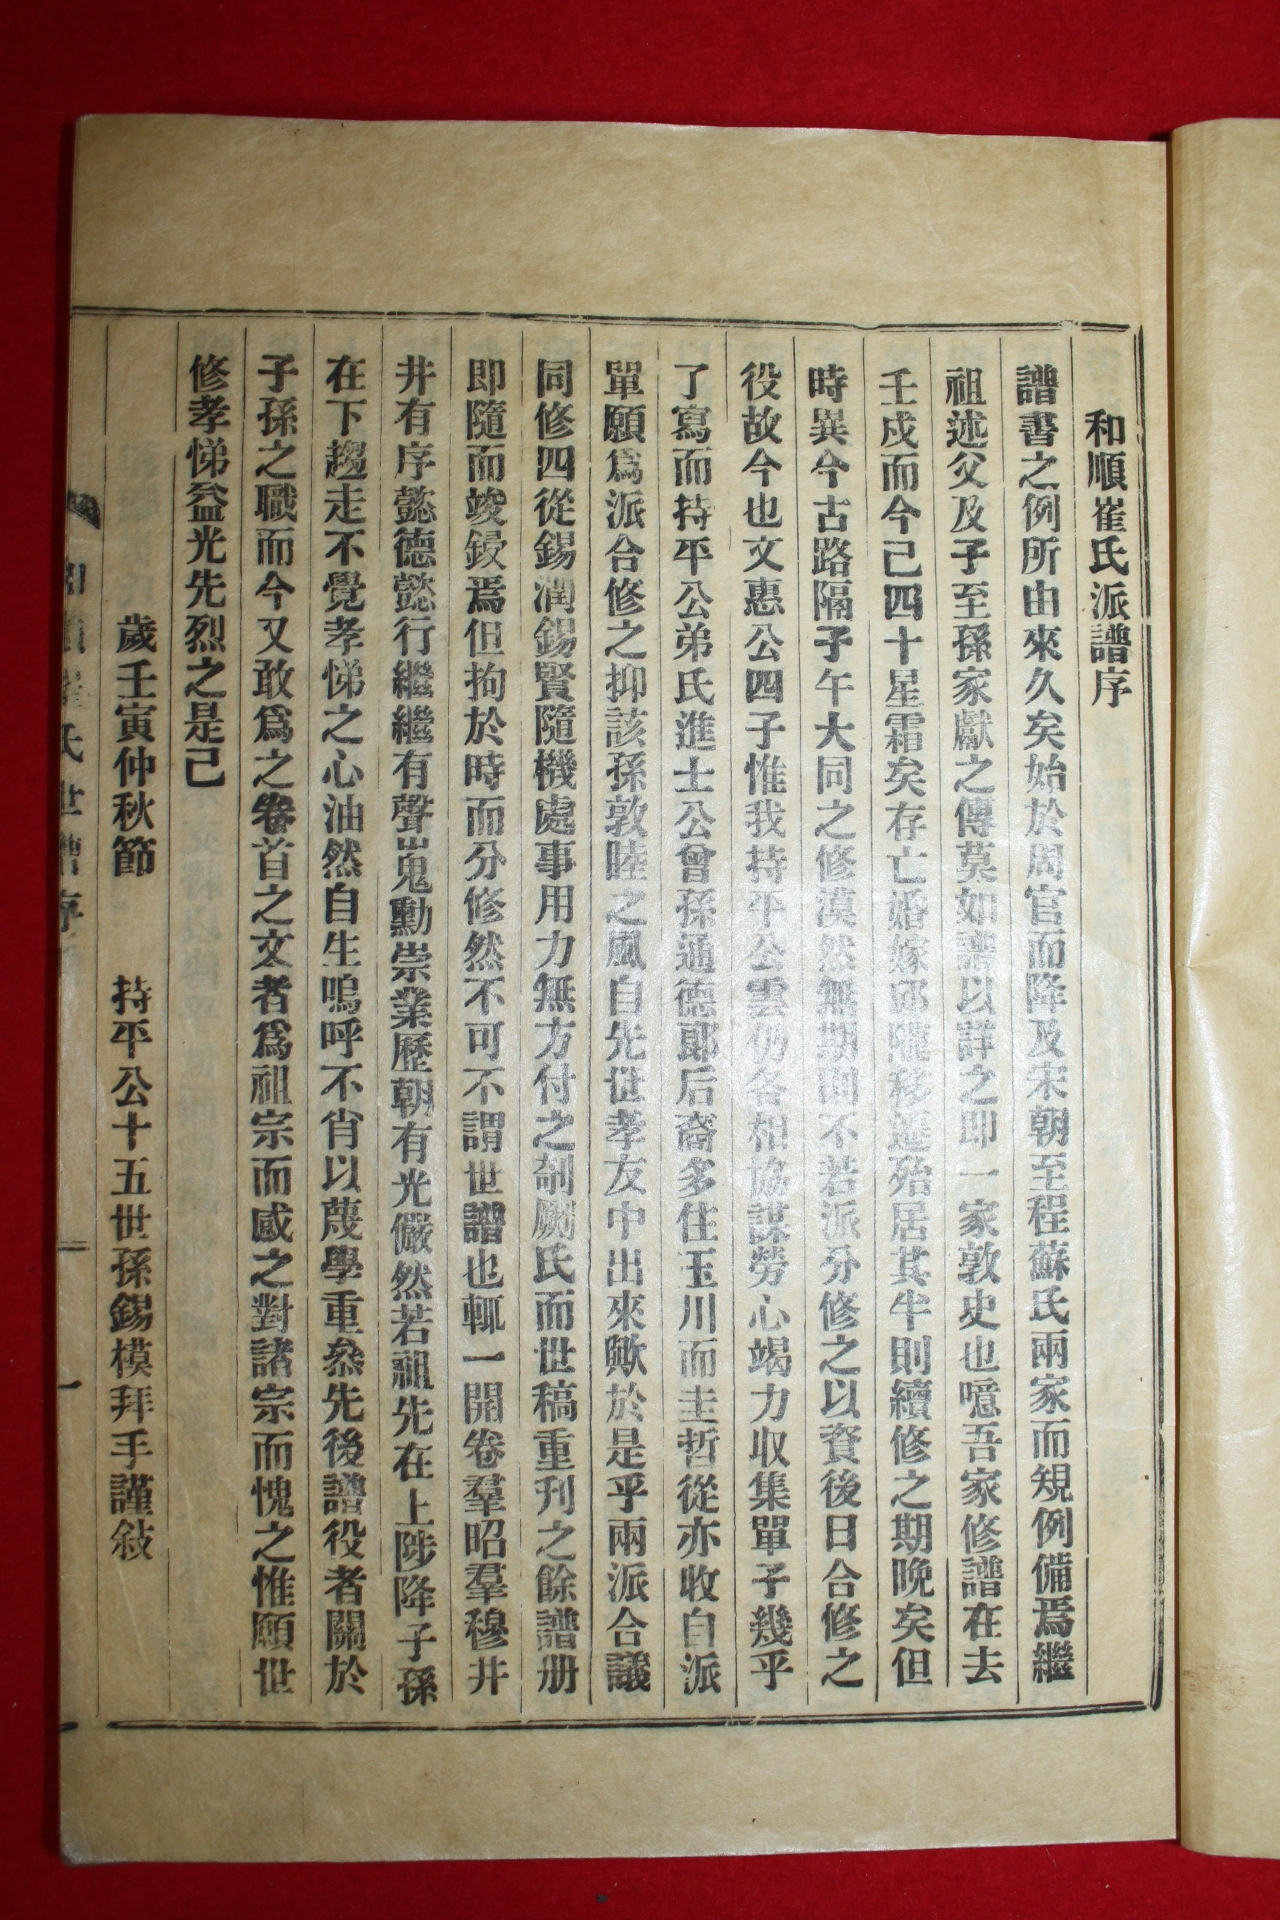 和順崔氏派譜序
譜書之例所由來久矣始於周官而降及宋朝至程蘇氏兩家而規例備焉繼
祖述父及子至孫家獻之傳莫如譜以詳之即一家敦史也噫吾家修譜在去
壬戍而今己四十星霜矣存亡婚嫁邱隴移遷殆居其半則續修之期晩矣但
時異今古路隔子午大同之修漠然無期則不若派分修之以資後日合修之
役故今也文惠公四子惟我持平公雲仍各相協謀勞心竭力収集單子幾乎
了寫而持平公弟氏進士公曾孫通德郞后裔多住玉川而圭哲從亦收自派
單願爲派合修之抑該孫敦睦之風自先世孝友中出來歟於是乎兩派合議
同修四從錫潤錫賢隨機處事用力無方付之剞劂氏而世稿重刊之餘譜册
即隨而竣鋟焉但拘於時而分修然不可不謂世譜也輒一開卷羣昭羣穆井
井有序懿德懿行繼繼有聲嵬勳崇業歷朝有光儼然若祖先在上陟降子孫
在下趨走不覺孝悌之心油然自生嗚呼不肖以蔑學重叅先後譜役者關於
子孫之職而今又敢爲之卷首之文者爲祖宗而感之對諸宗而愧之惟願世
修孝悌益光先烈之是己
歲壬寅仲秋節 持平公十五世孫錫模拜手謹敍
氏世譜序 一